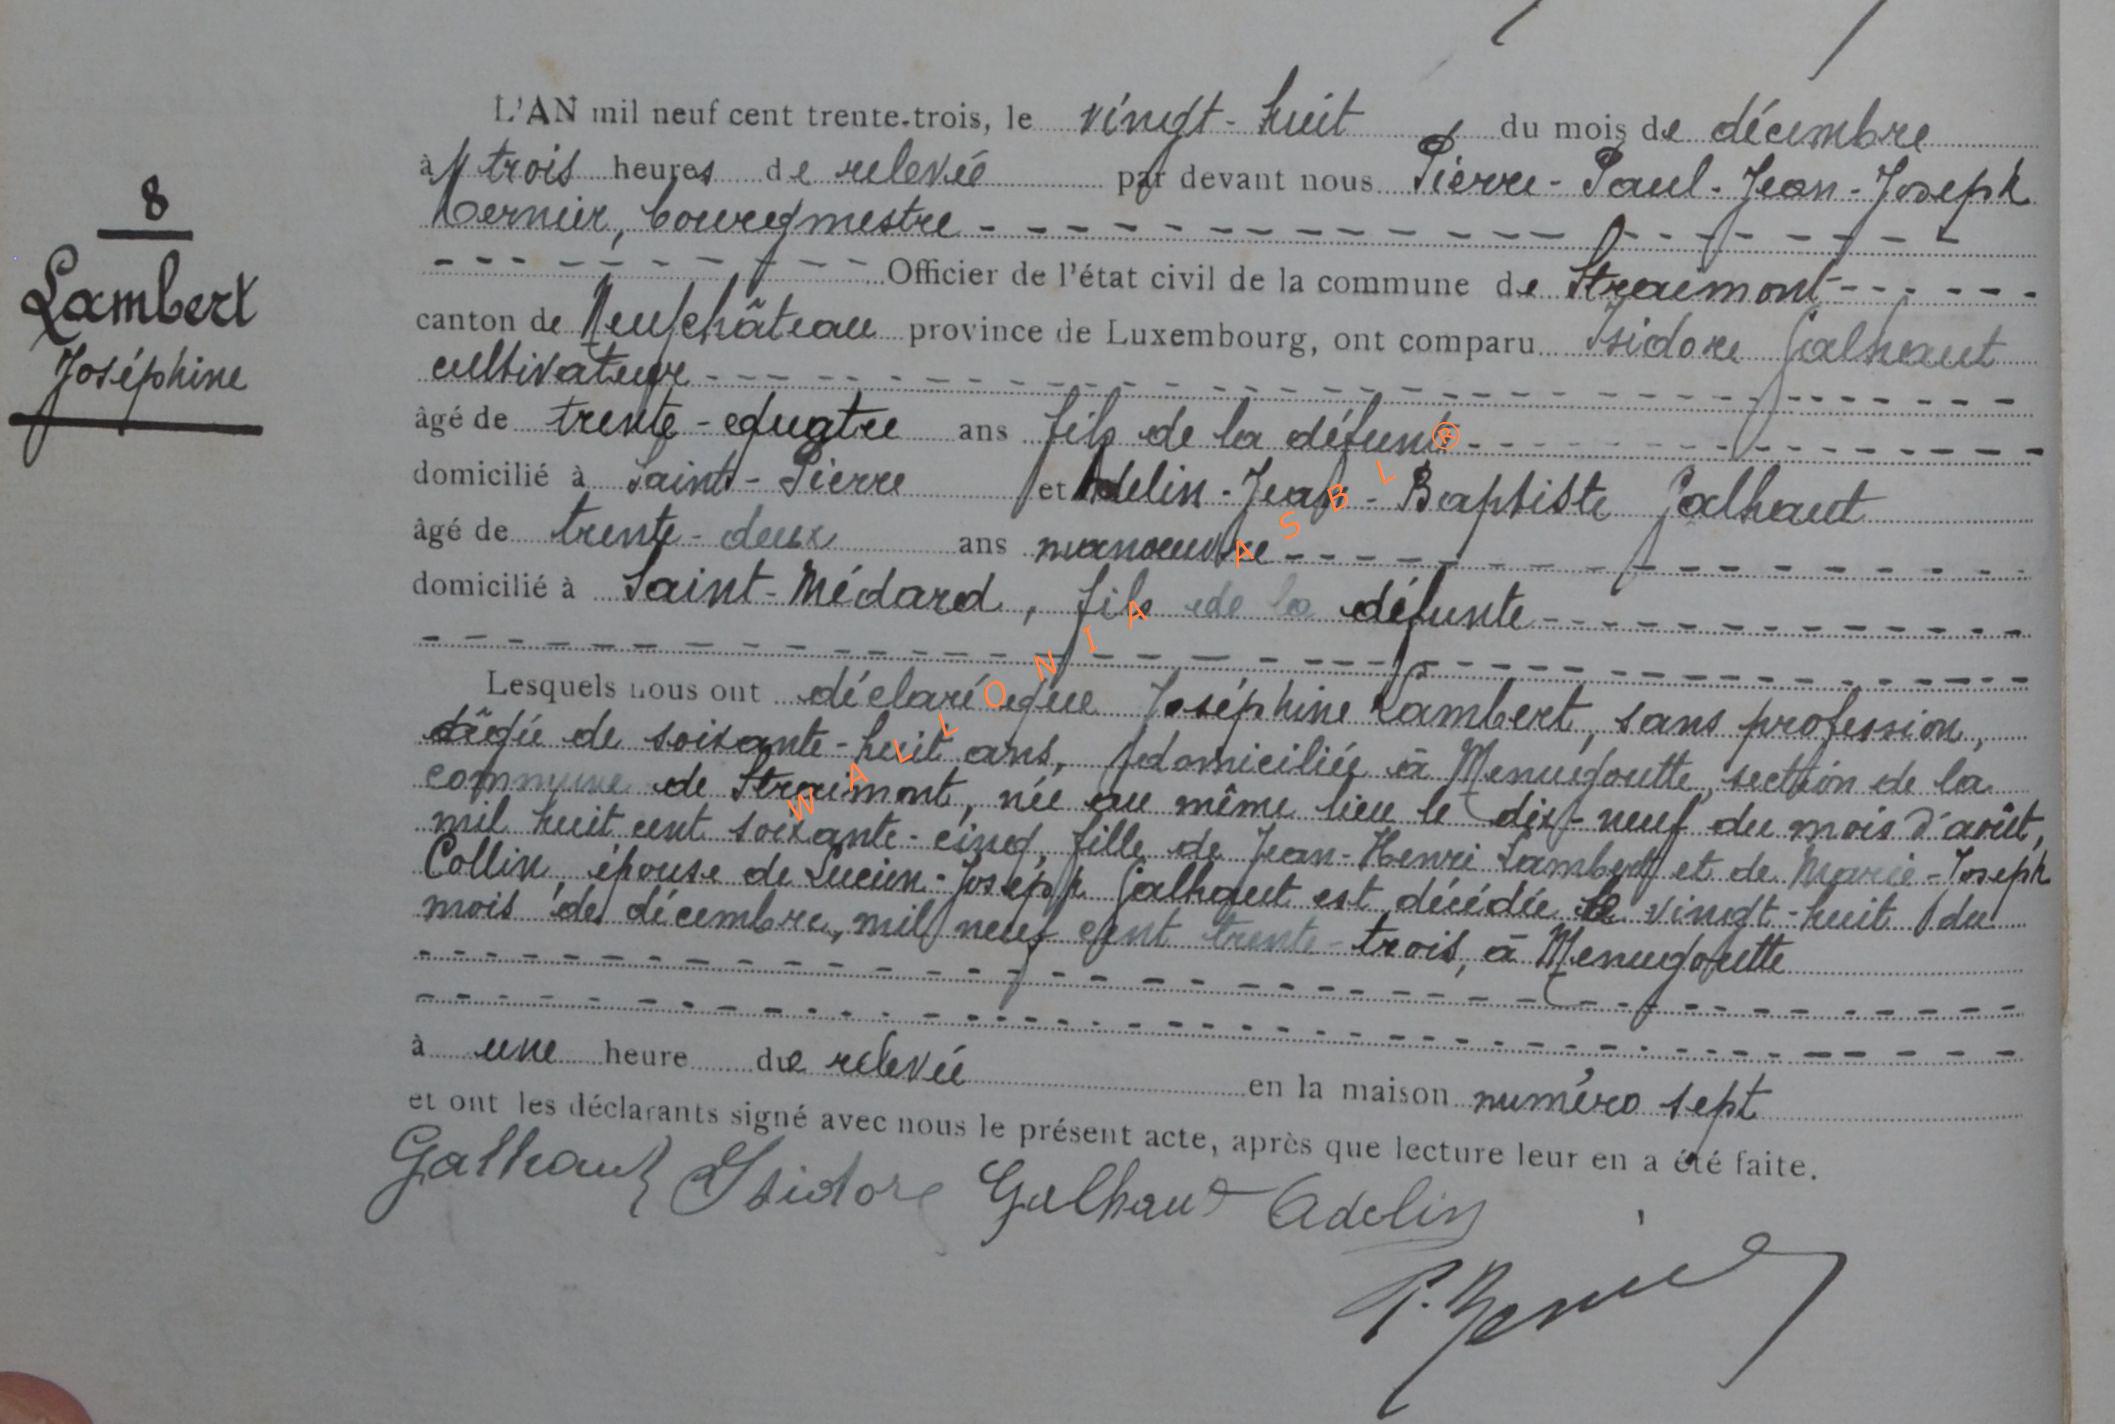 8
Lambert
Joséphine
L'AN mil neuf cent trente-trois, le vingt-huit du mois de décembre
à trois heures de relevée par devant nous Pierre-Paul-Jean-Joseph
bourgmestre
Officier de l'état civil de la commune de Straimont
canton de Neufchâteau province de Luxembourg, ont comparu Isidore Galhaut
cultivateur
âgé de trente-quatre ans fils de la défunte
domicilié à Saint-Pierre et Adelin-Jean-Baptiste Galhaut
âgé de trente-deux ans manoeuvre
domicilié à Saint-Médard, fils de la défunte
Lesquels nous ont déclaré que Joséphine Lambert, sans profession,
âgée de soixante-huit ans, domiciliée à Menugoutte, section de la
commune de Straimont, née au même lieu le dix-neuf du mois d'août,
mil huit cent soixante-cinq, fille de Jean-Henri Lambert et de Marie-Joseph
Collin, épouse de Lucien-Joseph Galhaut est décédée le vingt-huit du
mois de décembre, mil neuf cent trente-trois, à Menugoutte
à une heure de relevée en la maison numéro sept
et ont les déclarants signé avec nous le présent acte, après que lecture leur en a été faite.
Galhaut Isidore Galhaut Adelin
WALLONIA ASBL ®